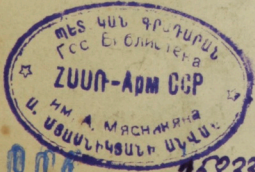 ՊԵՏ ԿԱՆ ԳՐԱԴԱՐԱՆ
Гос Библиотека
ՀՍԽՀ-Арм ССР
им А. Мясникяна
Ա. ՄՅԱՍՆԻԿՅԱՆԻ ԱՆՎԱՆ